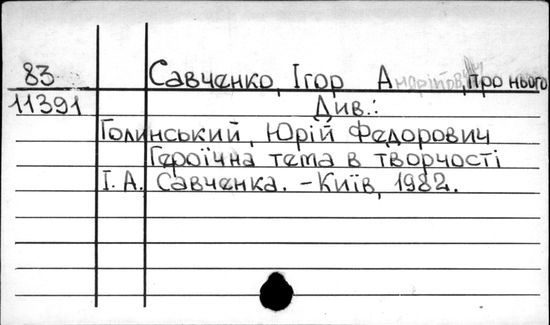 83 Савченко, Ігор А про нього
11391 Див.:
Голинський, Юрій Федорович
Героїчна тема в творчості
І. А. Савченка. - Київ, 1982.